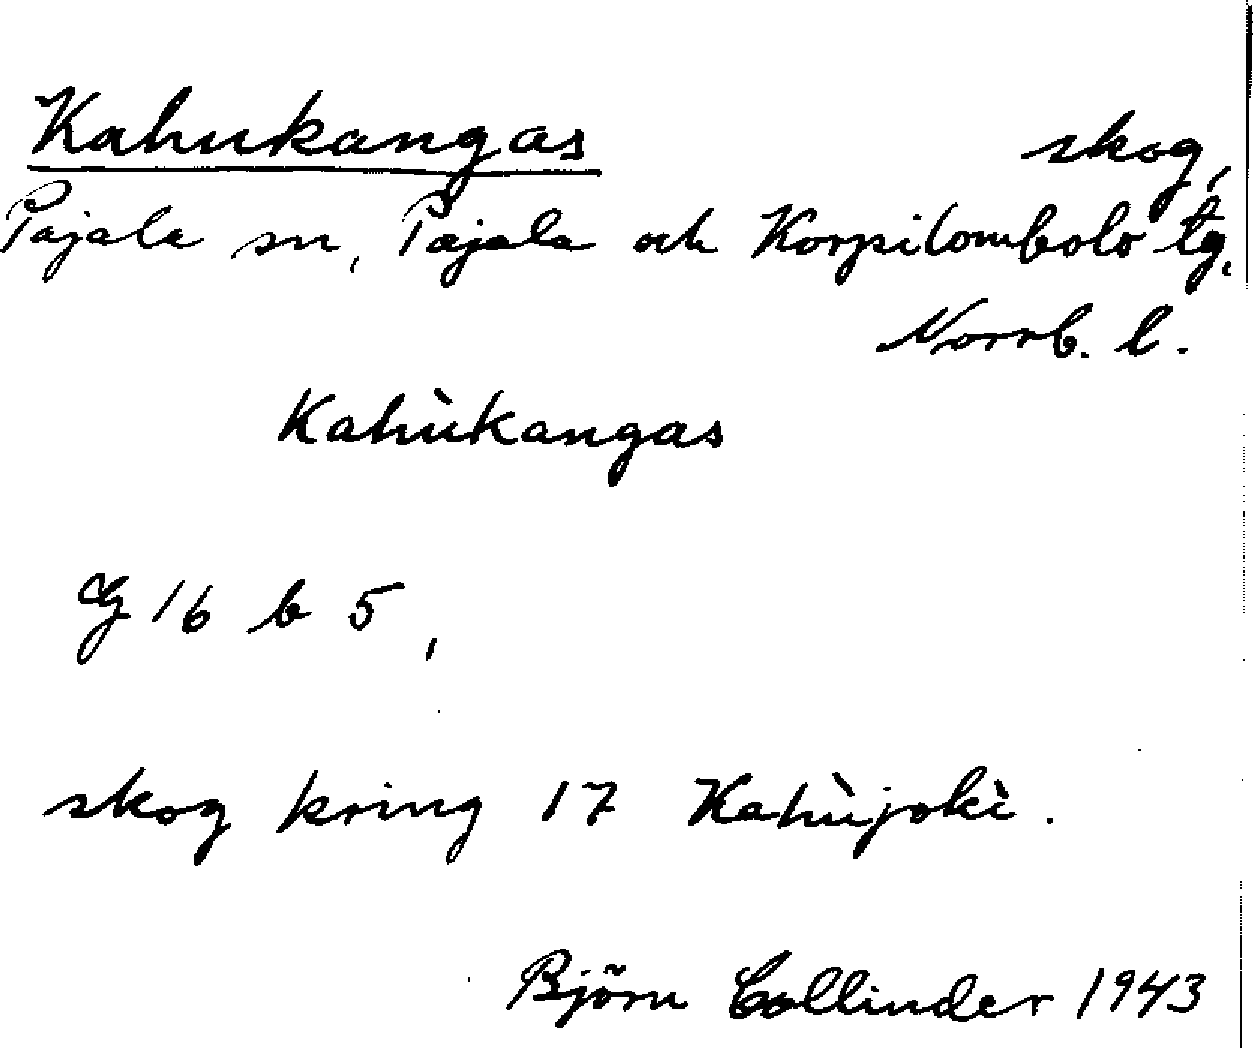 Kahukangas skog,
Pajala sn, Pajala och Korpilombolo tg.
Norrb. l.
Kahùkangas
G 16 b 5,
skog kring 17 Kahùjokì.
Björn Collinder 1943